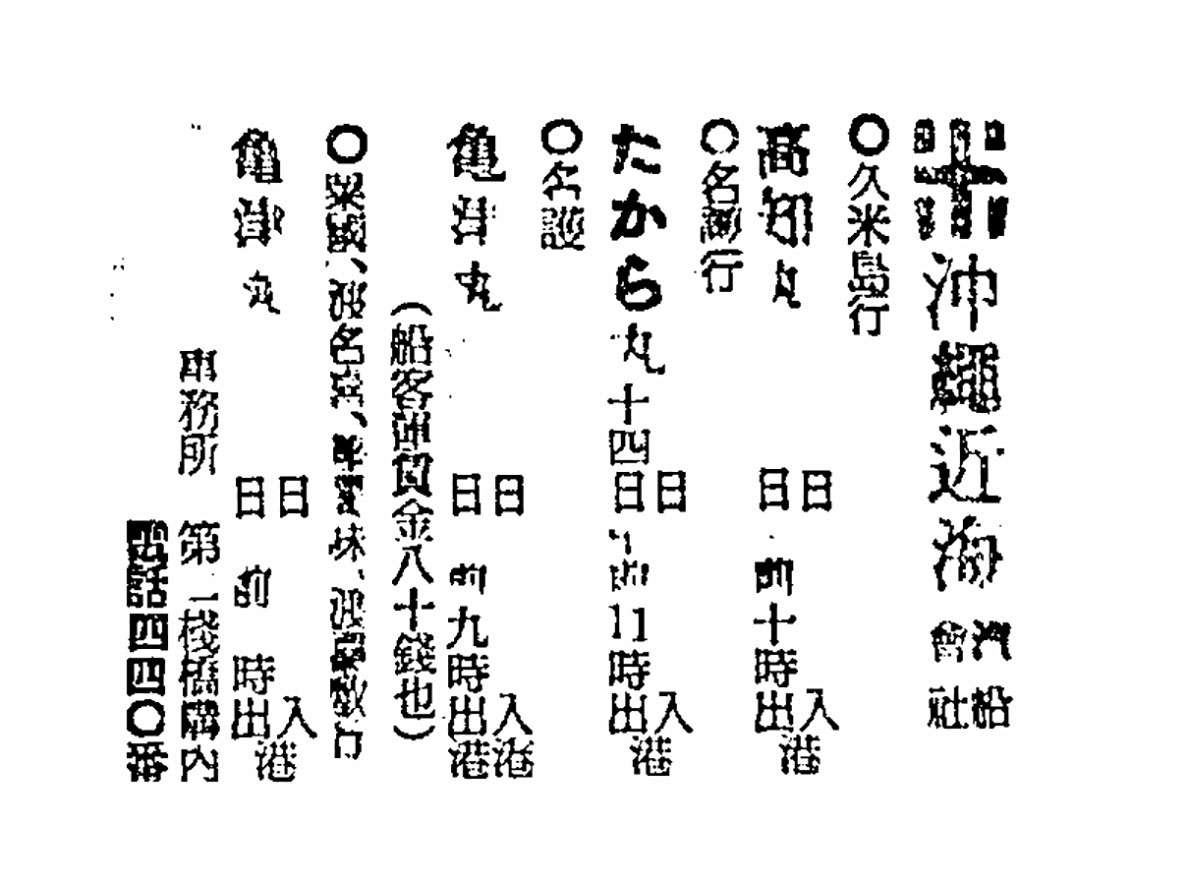 沖繩近海汽船會社
〇久米島行
高知丸 日 日前十時出 入港
〇名瀬行
たから丸 十四日 日 前11時出 入港
〇名護
亀津丸 日 日 前九時出港 入港
（船客運賃金八十錢也）
〇粟國、渡名喜、座間味、渡嘉敷行
亀津丸 日 日 前 時出 入港
事務所 第一棧橋構內
電話四四〇番